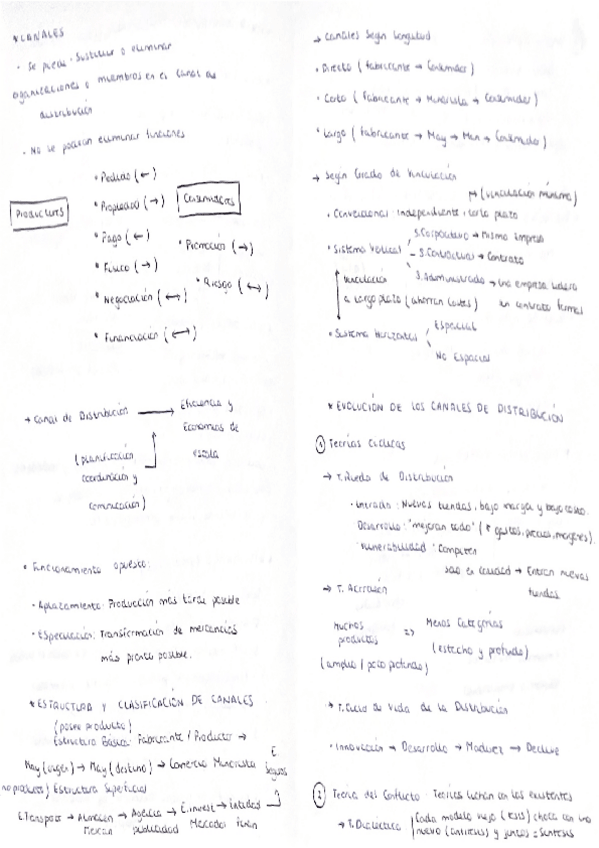 * CANALES
• Se puede: Sustituir o eliminar
organizaciones o miembros en el canal de
distribución
• No se podrán eliminar funciones
• Pedido (←)
Productores
• Propiedad (→)
Consumidores
• Pago (←)
• Promoción (→)
• Físico (→)
• Riesgo (↔)
• Negociación (↔)
• Financiación (↔)
→ Canal de Distribución → Eficiencia y
Economías de
escala
(planificación
coordinación y
comunicación)
• Funcionamiento opuesto:
• Aplazamiento: Producción más tarde posible
• Especulación: Transformación de mercancías
más pronto posible.
* ESTRUCTURA Y CLASIFICACIÓN DE CANALES
(posee producto)
Estructura Básica: Fabricante / Productor →
May (origen) → May (destino) → Comercio Minorista
no producto) Estructura Superficial
E. Transporte → Almacén → Agencia → E. invest → Entidad → E. Seguros
publicidad Mercados
→ Canales según longitud
• Directo (Fabricante → Consumidor)
• Corto (Fabricante → Minorista → Consumidor)
• Largo (Fabricante → May → Min → Consumidor)
→ Según Grado de Vinculación
↦ (vinculación mínima)
• Convencional: independiente, corto plazo
• Sistema Vertical
S. Corporativo → misma empresa
S. Contractual → Contrato
S. Administrado → una empresa lidera
sin contrato formal
vinculación
a largo plazo (ahorran costes)
• Sistema Horizontal
Espacial
No Espacial
* EVOLUCIÓN DE LOS CANALES DE DISTRIBUCIÓN
① Teorías Cíclicas
→ T. Rueda de Distribución
• Entrada: Nuevas tiendas, bajo margen y bajo costo.
Desarrollo: "mejoran todo" (↑ gastos, precios, margenes).
• Vulnerabilidad: Compiten
solo en calidad → Entran nuevas
tiendas
→ T. Acordeón
Muchos
productos
⇒ Menos Categorías
(estrecho y profundo)
(amplio / poco profundo)
→ T. Ciclo de Vida de la Distribución
• Innovación → Desarrollo → Madurez → Declive
② Teoría del Conflicto:
→ T. Dialéctica
Cada modelo viejo (tesis) choca con uno
nuevo (antítesis) y juntos = Síntesis